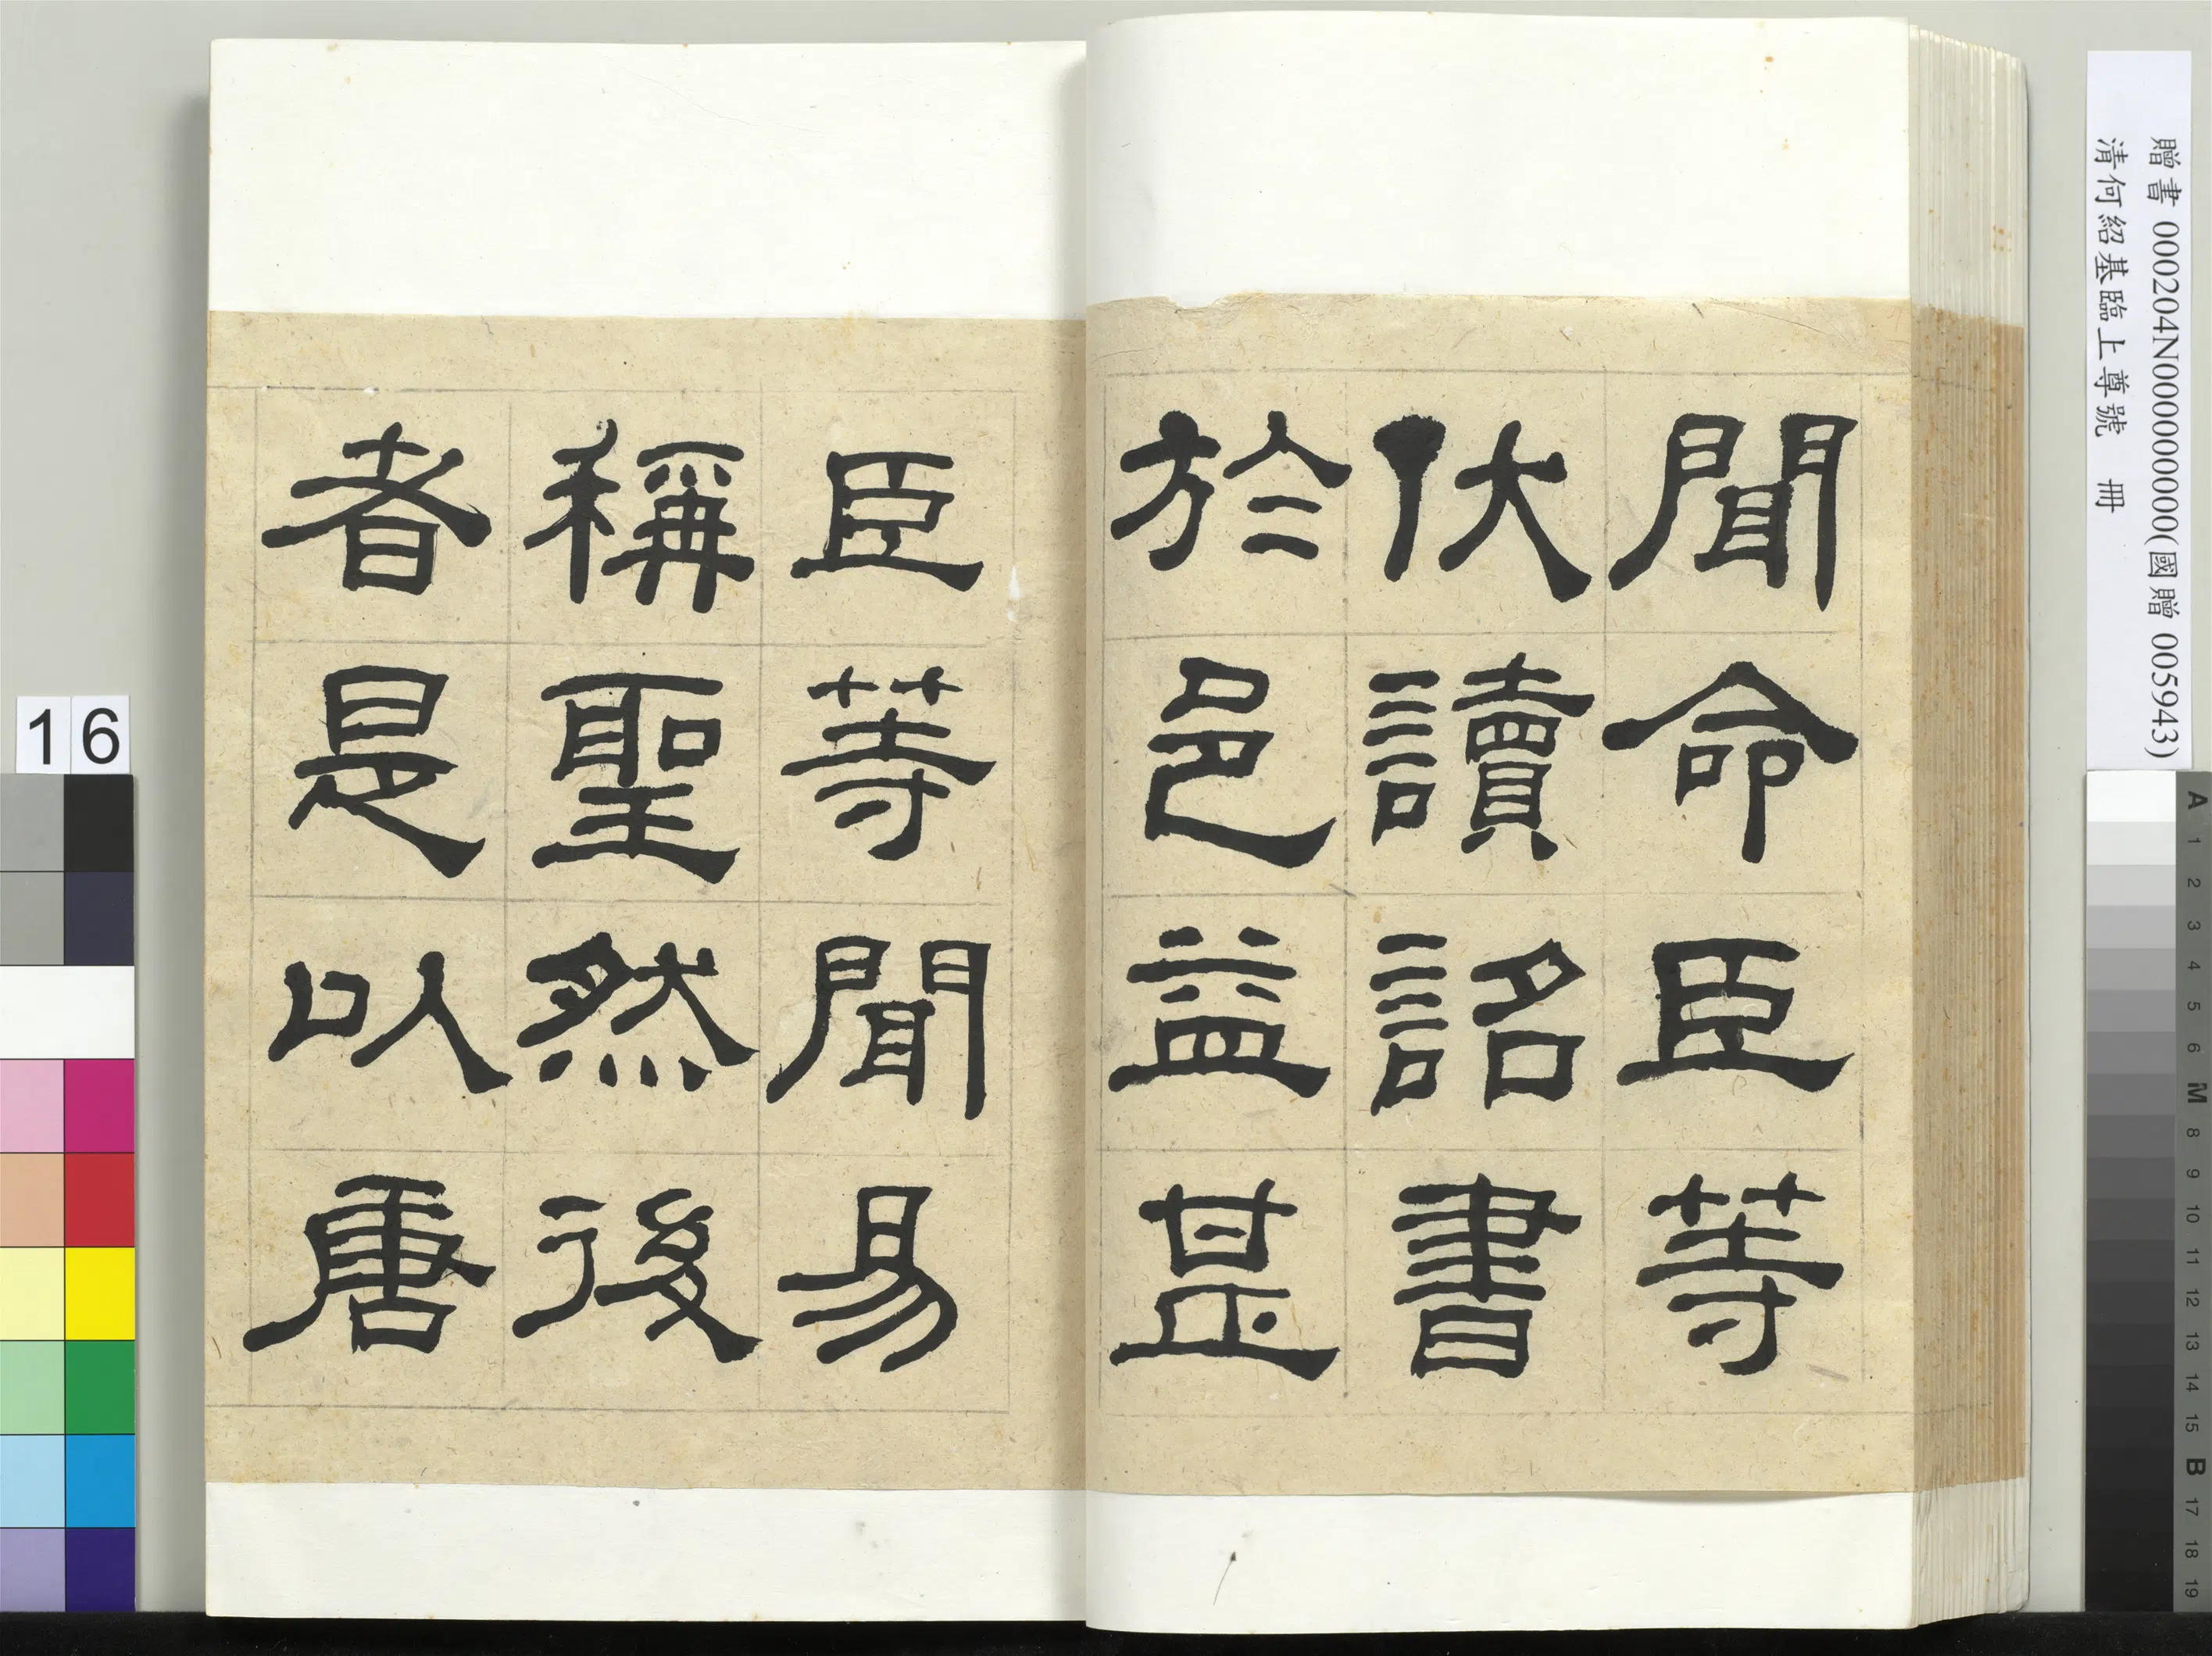 聞命臣等
伏讀詔書
於邑益甚
臣等聞易
稱聖然後
者是以唐
贈書 000204N000000000(國贈 005943)
清何紹基臨上尊號 冊
16
A 1 2 3 4 5 6 M 8 9 10 11 12 13 14 15 B 17 18 19